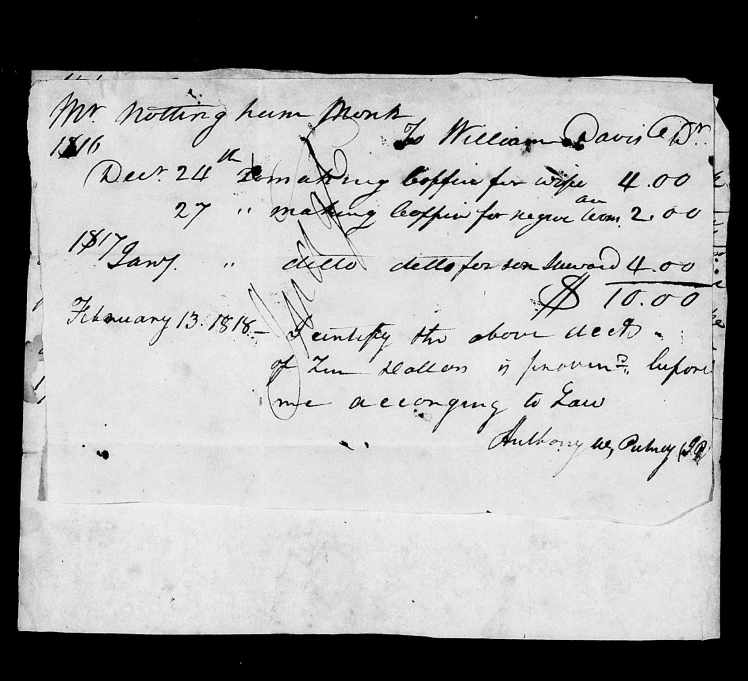 Mr. Nottingham Monk
To William Davis Dr.
1816
Decr. 24th to making Coffin for wife 4.00
27 " making Coffin for negroe 2.00
1817
Jany. " ditto ditto for son 4.00
$ 10.00
February 13. 1818 – I certify the above acct
of Ten Dollars is proven before
me acconging to Law
Anthony W. Putney (JP)